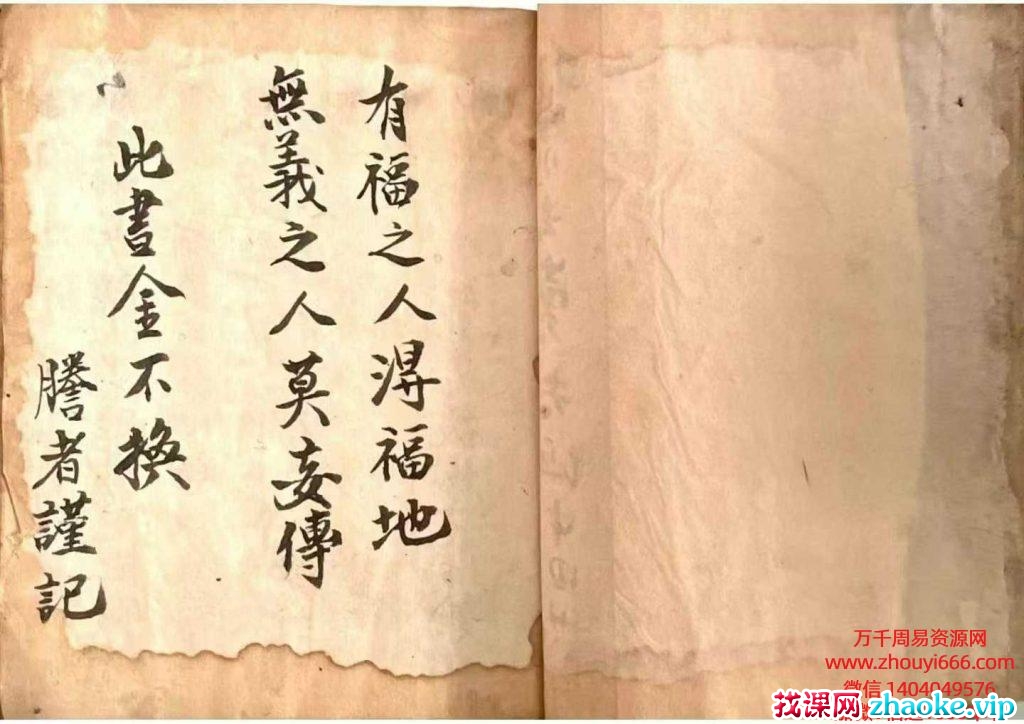 有福之人淂福地
無義之人莫妄傳
此書金不換
謄者謹記
万千周易资源网
www.zhouyi666.com
微信 1404049576
找课网zhaoke.vip